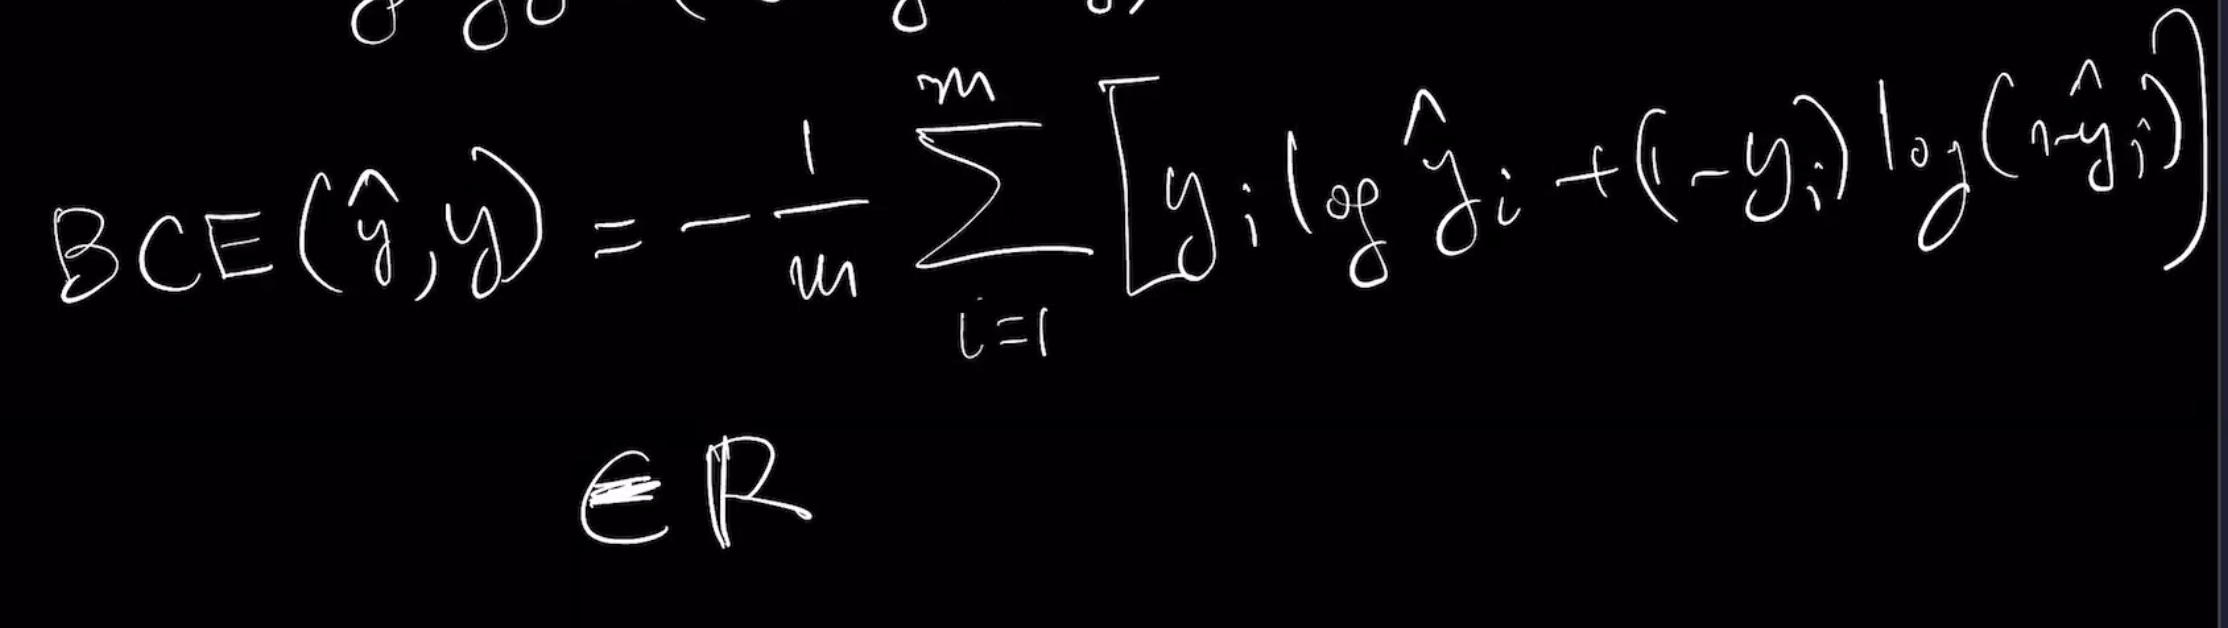 BCE(ŷ, y) = - 1/m ∑_{i=1}^{m} [y_i log ŷ_i + (1-y_i) log(1-ŷ_i)]
∈ ℝ